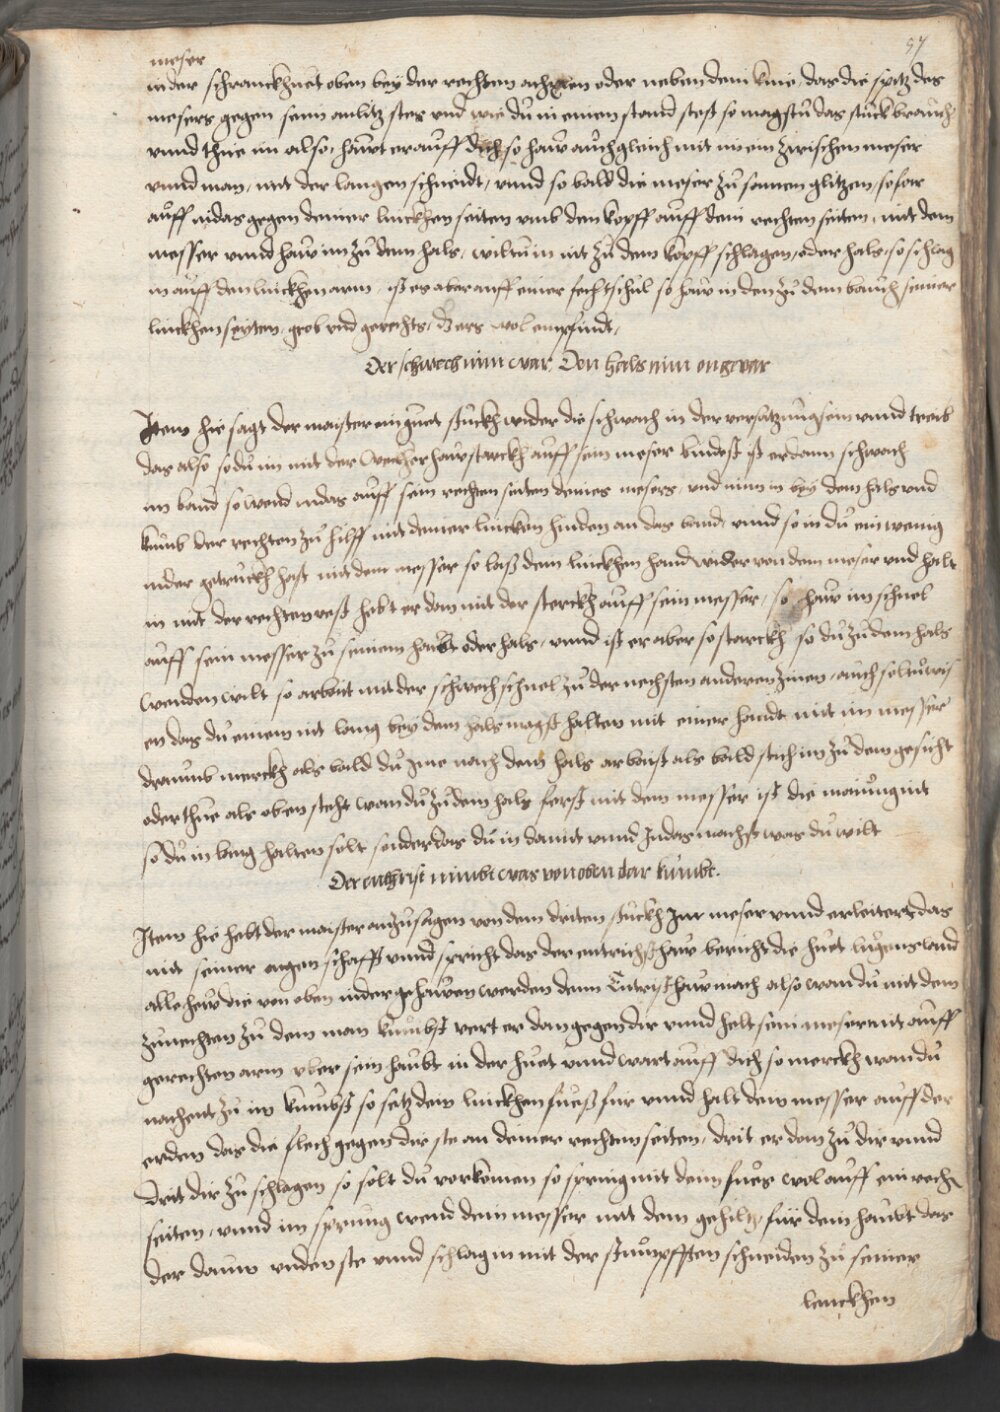 57
meser
in der schranckhuet oben bey der rechten achxen oder neben dem knie, das die spitz des
mesers gegen seim anlitz stee vnd wie du in einem stand stest so magstu das stuck brauch
vnnd thue im also, haut er auff dich so haw auch gleich mit im ein zwischen meser
vnnd man, mit der langen schneidt, vnnd so bald die meser zu samen glitzen, so far
auff indas gegen deiner linckhen seiten vmb den kopff auff dein rechten seiten, mit dem
messer vnnd haw im zu dem hals, wiltu in nit zu dem kopff schlagen, oder hals, so schlag
in auff den linckhen arm, ist es aber auff einer fechtschul so haw in den zu dem bauch seiner
linckhen seyten, grob vnd gerechts, Der's wol empfindt,
Der schwech nim war, Den hals nim on gever
Item hie sagt der maister ein guet stuckh wider die schwach in der versatzung sein vnnd treib
das also so du im mit der Weckher haw starckh auff sein meser bindest ist er dann schwach
im band so wend indas auff sein rechten seiten deines mesers, vnd nim in bey dem hals vnd
kumb der rechten zu hilff mit deiner lincken hinden an das band, vnnd so in du ein wenig
nider getruckh hast mit dem messer so lass dein linckhen hand wider von dem meser vnd halt
in mit der rechten vest hebt er dan mit der sterckh auff sein messer, so haw im schnel
auff sein messer zu seinem haubt oder hals, vnnd ist er aber so starckh so du zu dem hals
wenden wilt so arbait mit der schwech schnel zu der nechsten anderen zinen, auch soltu wis
en das du einem nit lang bey dem hals magst halten mit einer handt mit im messer
drumb merckh als bald du ime nach dem hals arbaist als bald stich im zu dem gesicht
oder thue als oben steht wan du zu dem hals ferst mit dem messer ist die mainung nit
so du in lang halten solt sonder das du in damit vnnd indas machst was du wilt
Der entrist nimbt was von oben dar kumbt.
Item hie hebt der maister an zu sagen von dem driten stuckh im meser vnnd erleitert das
mit seiner aigenschafft vnnd spricht das der entrichsthaw bericht die huet luginsland
alle hew die von oben nider gehawen werden den Entristhaw mach also wan du mit dem
zunechten zu dem man kumbst vert er dan gegen dir vnnd helt sein meser mit auff
gerechten arm vber sein haubt in der huet vnnd wart auff dich so merckh wan du
nachent zu im kumbst so setz dein linckhen fuess fur vnnd halt dein messer auff der
erden das die flech gegen dir ste an deiner rechten seiten, drit er dan zu dir vnnd
drit dir zu schlagen so solt du vorkomen so spring mit dein fues wol auff ein rech
seiten, vnnd im sprung wend dein messer mit dem gehiltz, fur dein haubt das
der daum vnden ste vnnd schlag in mit der stumpfften schneiden zu seiner
lenckhen